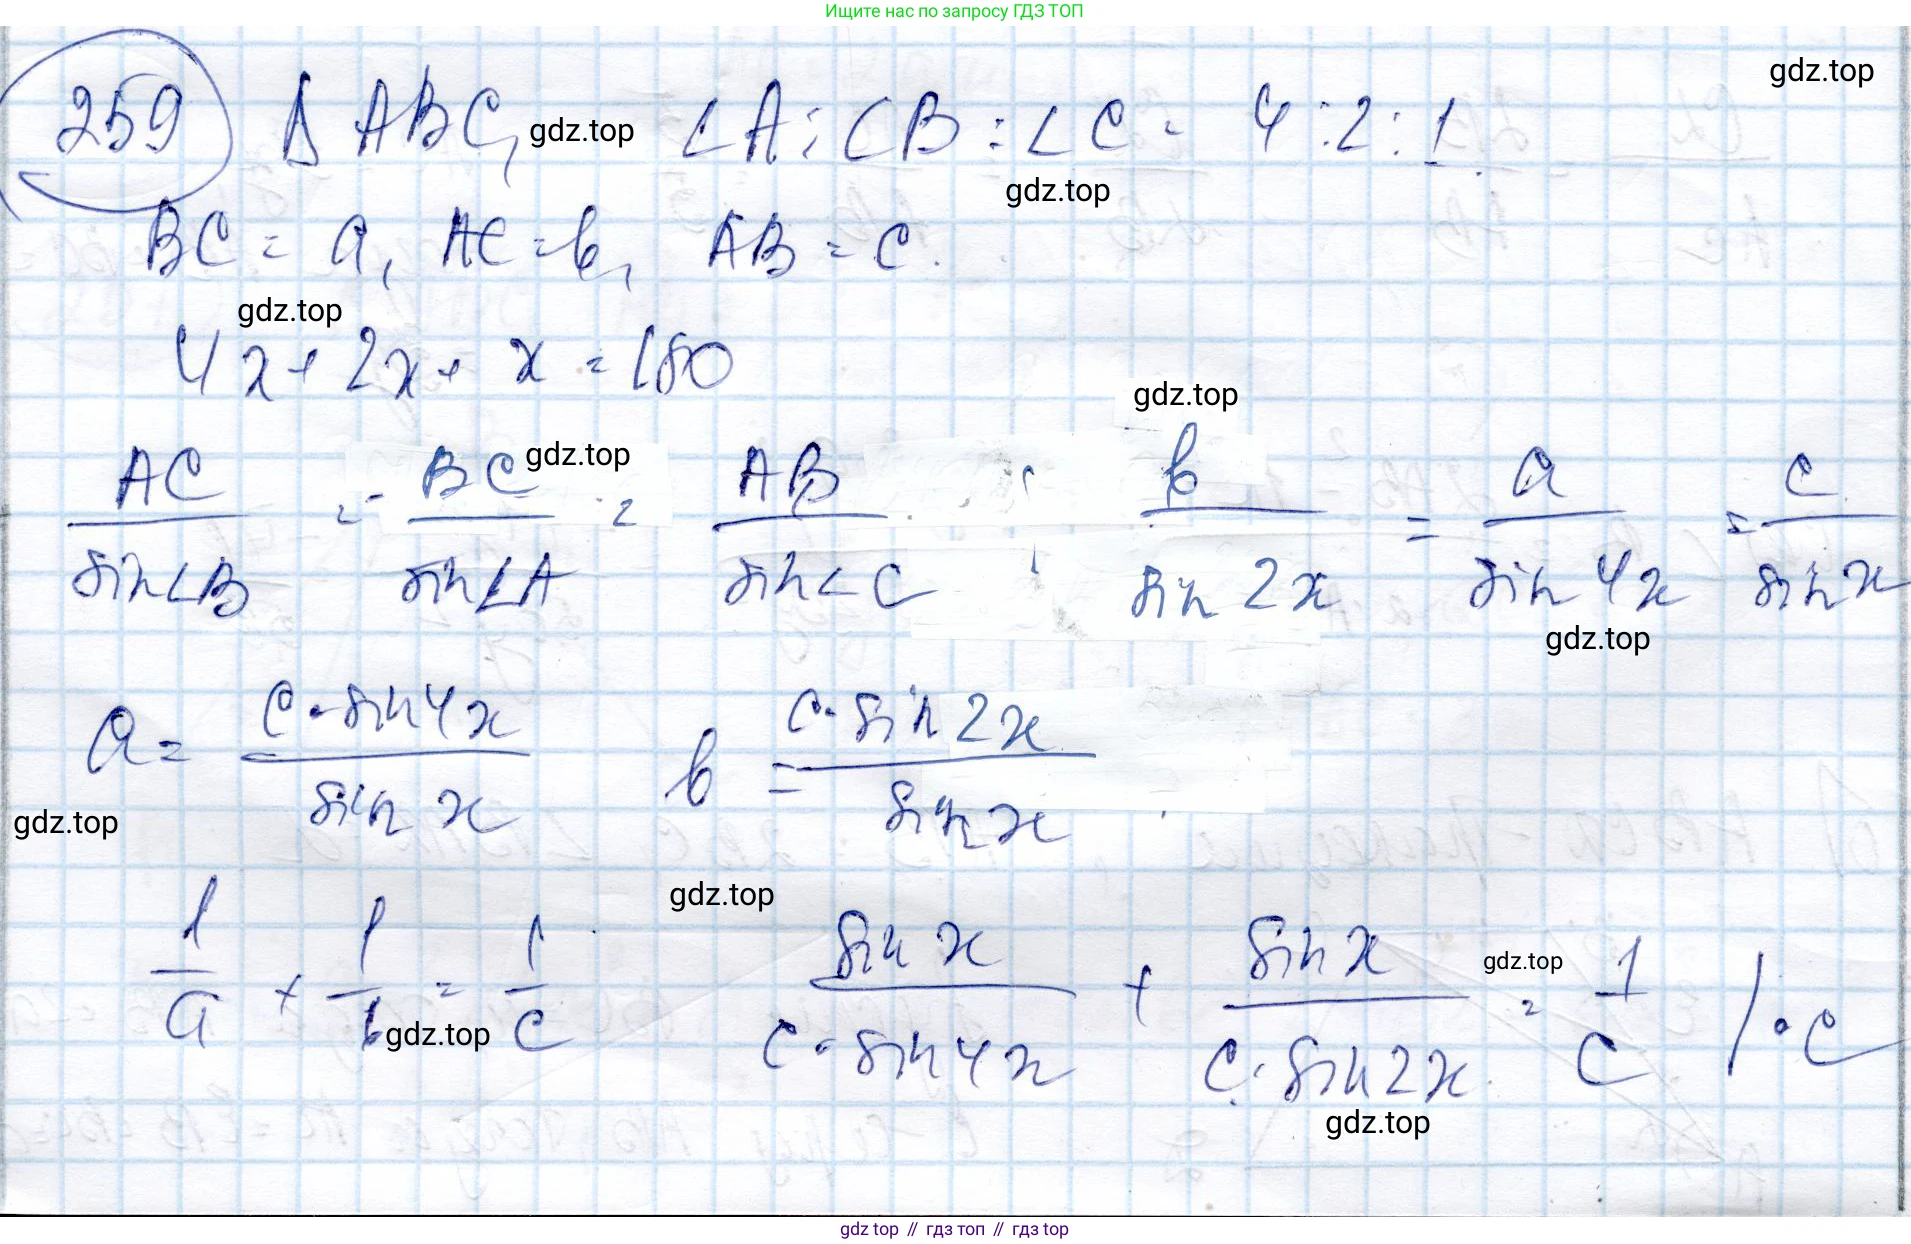 Ищите нас по запросу ГДЗ ТОП
gdz.top
259 Δ ABC, gdz.top ∠A : ∠B : ∠C = 4 : 2 : 1
gdz.top
BC = a, AC = b, AB = c.
gdz.top
4x + 2x + x = 180
gdz.top
AC/sin∠B = BC/sin∠A = AB/sin∠C b/sin 2x = a/sin 4x = c/sin x
gdz.top
gdz.top
a = c·sin4x/sin x b = c·sin2x/sin x
gdz.top
gdz.top
1/a + 1/b = 1/c sin x/c·sin4x + sin x/c·sin2x = 1/c /·c
gdz.top
gdz.top
gdz.top
gdz top // гдз топ // гдз top